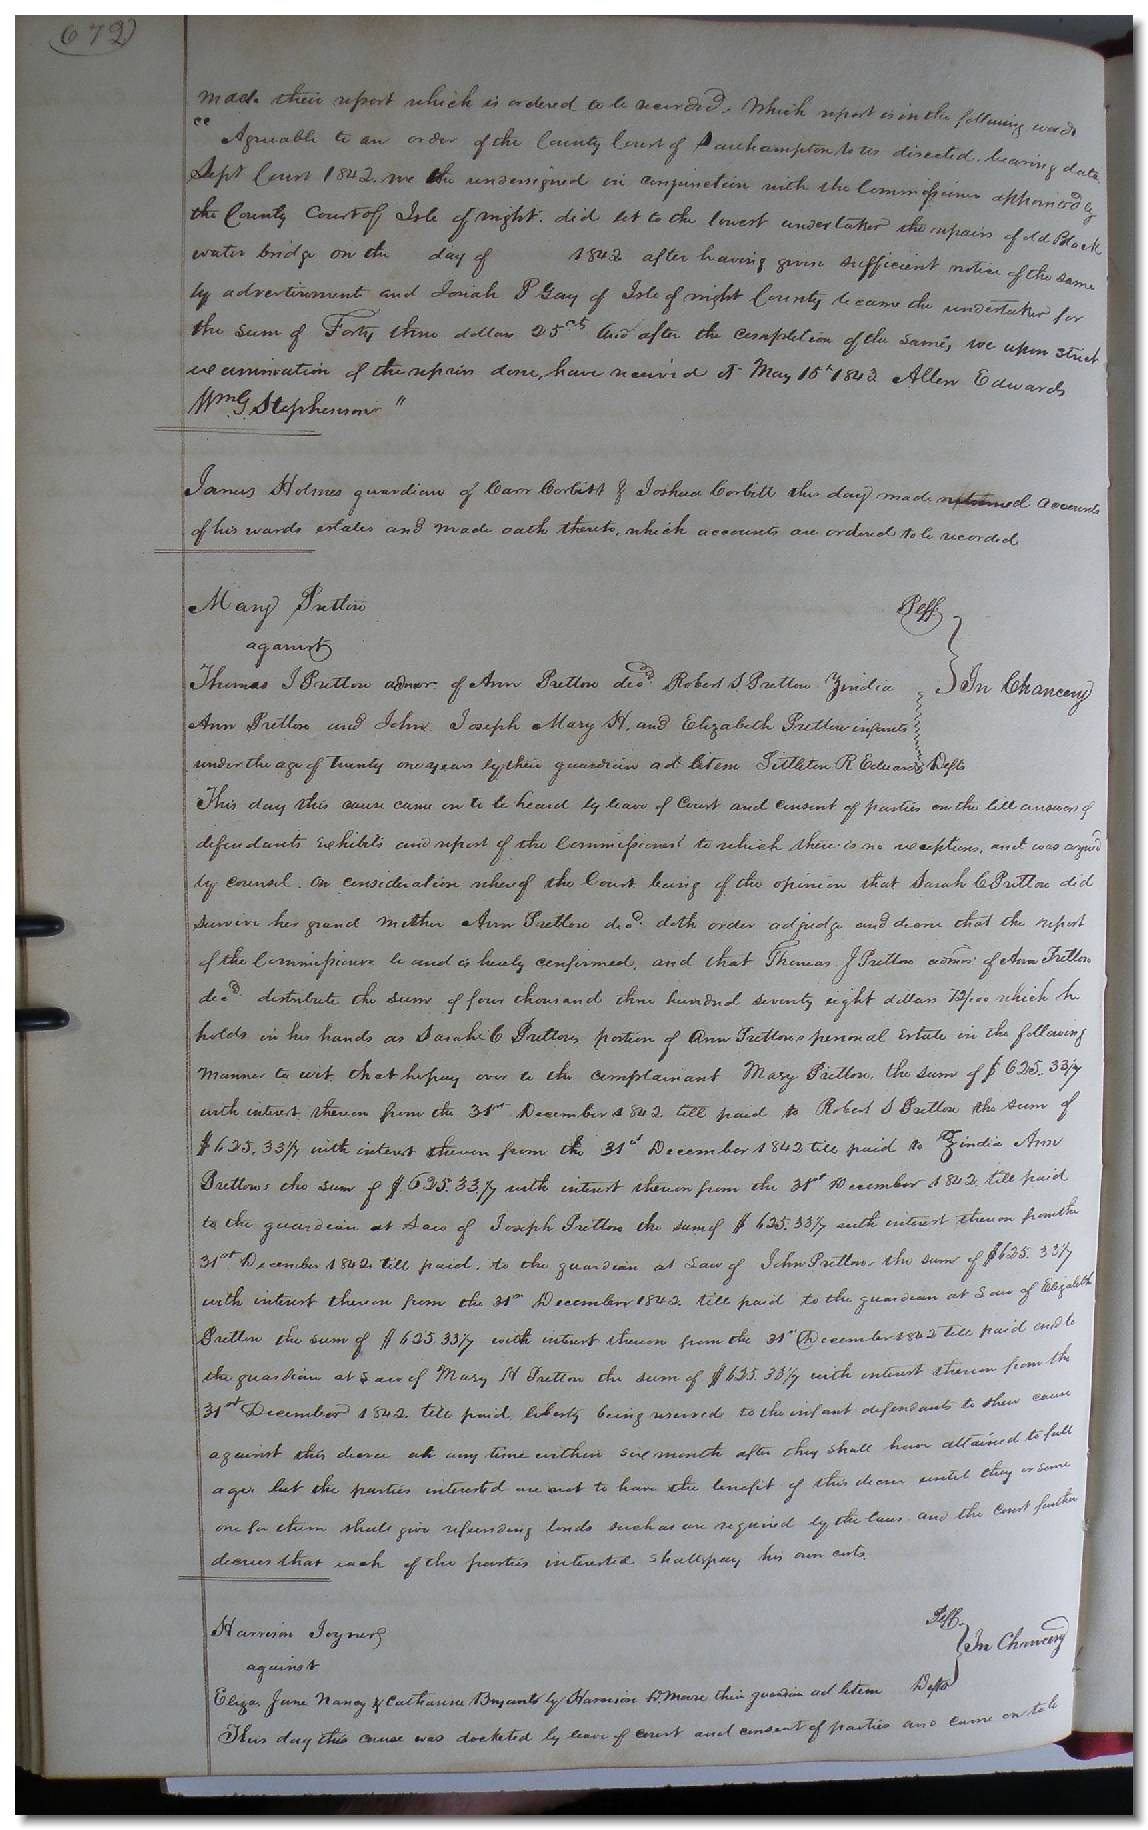 672
made their report which is ordered to be recorded. Which report is in the following words
"Agreeable to an order of the County Court of Southampton to us directed, bearing date
Sept Court 1842. we the undersigned in conjunction with the Commissioners appointed by
the County Court of Isle of wight. did let to the lowest undertaker the repairs of old Black
water bridge on the day of 1842 after having given sufficient notice of the same
by advertisement and Josiah P Gay of Isle of wight County became the undertaker for
the sum of Forty three dollars 25cts and after the completion of the same, we upon strict
examination of the repairs done, have received it May 15th 1843 Allen Edwards
Wm G. Stephenson"
James Holmes guardian of Carr Corbitt & Joshua Corbitt this day made returned accounts
of his wards estates and made oath thereto, which accounts are ordered to be recorded
Mary Pretlow Pltff
against
Thomas J Pretlow admor. of Ann Pretlow decd. Robert S. Pretlow Zindia In Chancery
Ann Pretlow and John Joseph Mary H. and Elizabeth Pretlow infants
under the age of twenty one years by their guardian ad litem Littleton R Edwards Defts
This day this cause came on to be heard by leave of Court and consent of parties on the bill answers of
defendants exhibits and report of the Commissioners to which there is no exceptions, and was argued
by counsel. On consideration whereof the Court being of the opinion that Sarah C Pretlow did
survive her grand mother Ann Pretlow decd. doth order adjudge and decree that the report
of the Commissioners be and is hereby confirmed, and that Thomas J Pretlow admor of Ann Pretlow
decd. distribute the sum of four thousand three hundred seventy eight dollars 72/100 which he
holds in his hands as Sarah C Pretlows portion of Ann Pretlows personal Estate in the following
manner to wit, that he pay over to the complainant Mary Pretlow, the sum of $625.33 1/7
with interest thereon from the 31st December 1842 till paid to Robert S Pretlow the sum of
$625.33 1/7 with interest thereon from the 31st December 1842 till paid to Zindia Ann
Pretlow the sum of $625.33 1/7 with interest thereon from the 31st December 1842 till paid
to the guardian at Law of Joseph Pretlow the sum of $625.33 1/7 with interest thereon from the
31st December 1842 till paid. to the guardian at Law of John Pretlow the sum of $625.33 1/7
with interest thereon from the 31st December 1842 till paid to the guardian at Law of Elizabeth
Pretlow the sum of $625.33 1/7 with interest thereon from the 31st December 1842 till paid and to
the guardian at Law of Mary H Pretlow the sum of $625.33 1/7 with interest thereon from the
31st December 1842 till paid, liberty being reserved to the infant defendants to shew cause
against this decree at any time within six month after they shall have attained to full
age. but the parties interested are not to have the benefit of this decree until they or some
one for them shall give refunding bonds such as are required by the laws and the Court further
decrees that each of the parties interested shall pay his own costs.
Harrison Joyner Pltff
against In Chancery
Eliza, Jane Nancy & Catharine Bryant by Harrison D. Moore their guardian ad litem Defts
This day this cause was docketed by leave of court and consent of parties and came on to be